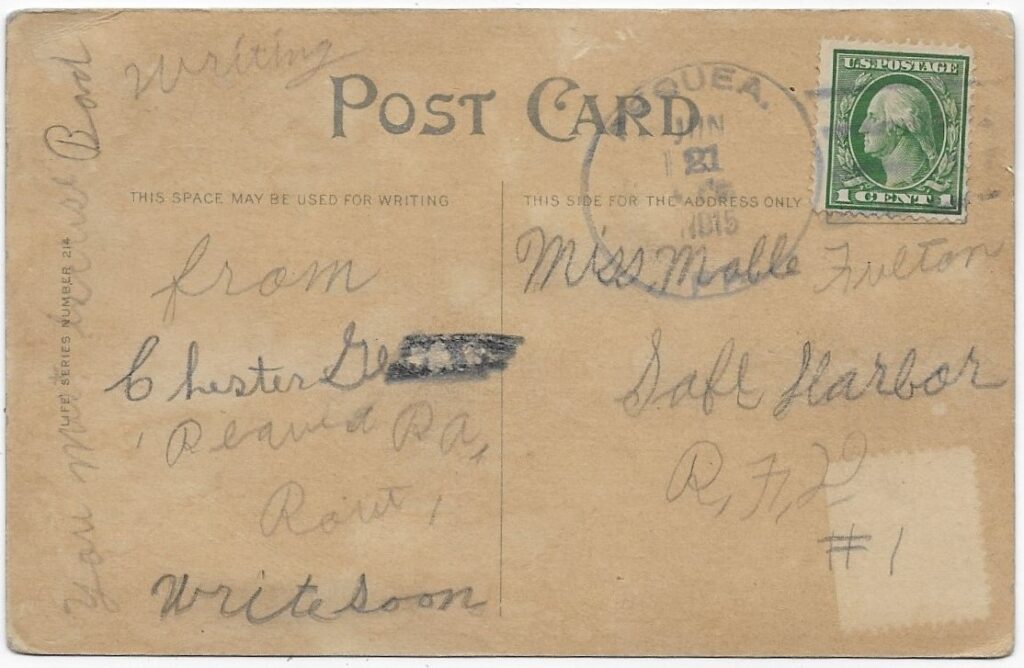 Writing
POST CARD
U.S. POSTAGE
1 CENT 1
QUEA.
JUN
21
1915
THIS SPACE MAY BE USED FOR WRITING
THIS SIDE FOR THE ADDRESS ONLY
LIFE SERIES NUMBER 214
You must excuse Bad
from
Chester
Pa,
Rout 1
Write soon
Miss Mable Fulton
Safe Harbor
R, F, D
#1